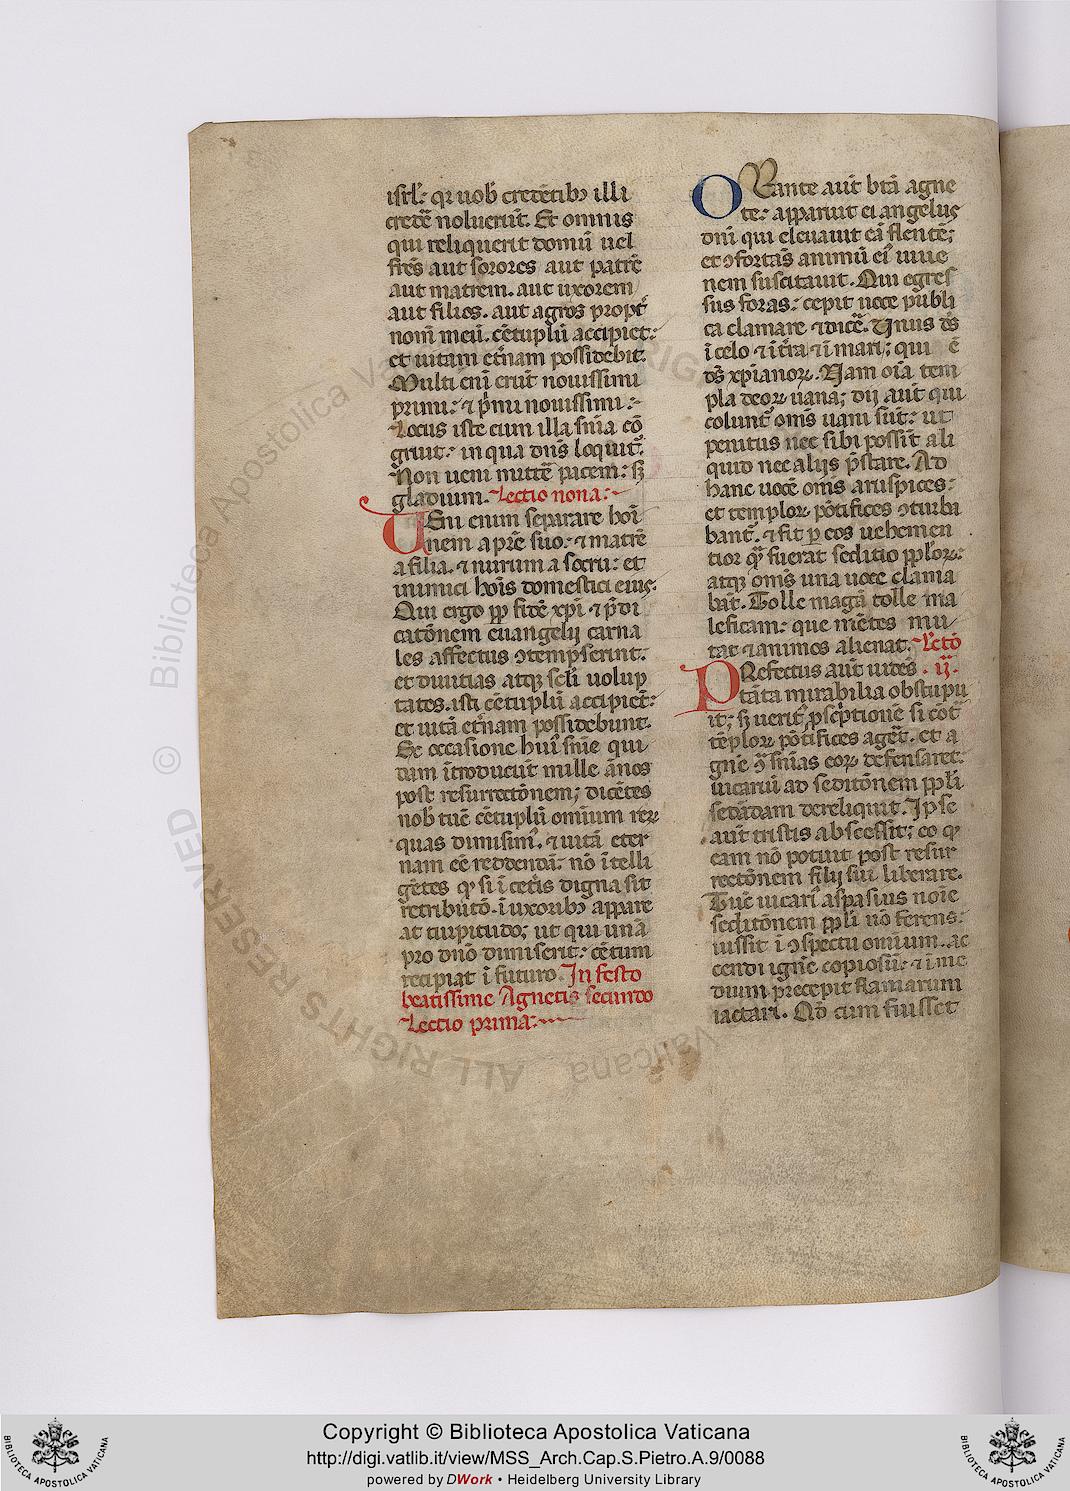 isrl̄: qr uob̄ credētibꝫ illi
credē noluerūt. Et omnis
qui reliquerit domū uel
frēs aut sorores aut patrē
aut matrem. aut uxorem
aut filios. aut agros propt̄
nom̄ meū. cētuplū accipiet:
et uitam et̄nam possidebit.
Multi eni erūt nouissimi
primi: ⁊ p̄mi nouissimi:
Locus iste cum illa snīa cō
gruit: in qua dn̄s loquit̄.
Non ueni mittē pacem: sꝫ
gladium. Lectio nona:
UEni enim separare hoī
nem a pr̄e suo: ⁊ matrē
a filia. ⁊ nurum a socru: et
inimici hoīs domestici eiꝰ.
Qui ergo ꝓꝑ fidē xp̄i ⁊ p̄di
catōnem euangelij carna
les affectus ꝯtempserint.
et diuitias atqꝫ scl̄i uolup
tates. isti cētuplū accipiet:
et uitā et̄nam possidebunt.
Ex occasione huiꝰ snīe qui
dam ītroducūt mille ānos
post resurrectōnem; dicētes
nob̄ tūc cētuplū omīum reꝝ
quas dimisimꝰ. ⁊ uitā eter
nam eē reddendā: nō ītelli
gētes qꝙ si ī cet̄is digna sit
retributō. ī uxoribꝫ appare
at turpitudo; ut qui unā
pro dn̄o dimiserit: cētum
recipiat ī futuro. In festo
beatissime Agnetis secundo
Lectio prima:
ORante aut̄ btā agne
te: apparuit ei angelus
dn̄i qui eleuauit eā flentē;
et ꝯfortās animū eiꝰ iuue
nem suscitauit. Qui egres
sus foras: cepit uoce publi
ca clamare ⁊ dicē. Unus dꝰs
ī celo ⁊ ī t̄ra ⁊ ī mari; qui ē
dꝰs xp̄ianoꝝ. Nam oīa tem
pla deoꝝ uana; dij aut̄ qui
colunt̄ omīs uani sūt: ut
penitus nec sibi possīt ali
quid nec alijs p̄stare. Ad
hanc uocē omīs aruspices:
et temploꝝ pōtifices ꝯturba
bant̄. ⁊ fit ꝑ eos uehemen
tior qꝫ fuerat seditio pp̄loꝝ:
atqꝫ omīs una uoce clama
bāt. Tolle magā tolle ma
leficam: que mētes mu
tat ⁊ animos alienat. Lectō
PRefectus aut̄ uites̄ . ij.
tāta mirabilia obstupu
it; sꝫ uerit̄ ꝓscptione si cōt̄
tēploꝝ pōtifices aget̄. et a
gne ꝯ̄ snīas eoꝝ defensaret:
uicariū ad seditōnem pp̄li
sedādam dereliquit. Ipse
aut̄ tristis abscessit; eo qꝙ
eam nō potuit post resur
rectōnem filij sui liberare.
Tūc uicariꝰ aspasius noīe
seditōnem pp̄li nō ferens:
iussit ī ꝯspectu omīum. ac
cendi ignē copiosū: ⁊ ī me
dium precepit flamarum
iactari. Qd̄ cum fuisset
Copyright © Biblioteca Apostolica Vaticana
http://digi.vatlib.it/view/MSS_Arch.Cap.S.Pietro.A.9/0088
powered by DWork • Heidelberg University Library